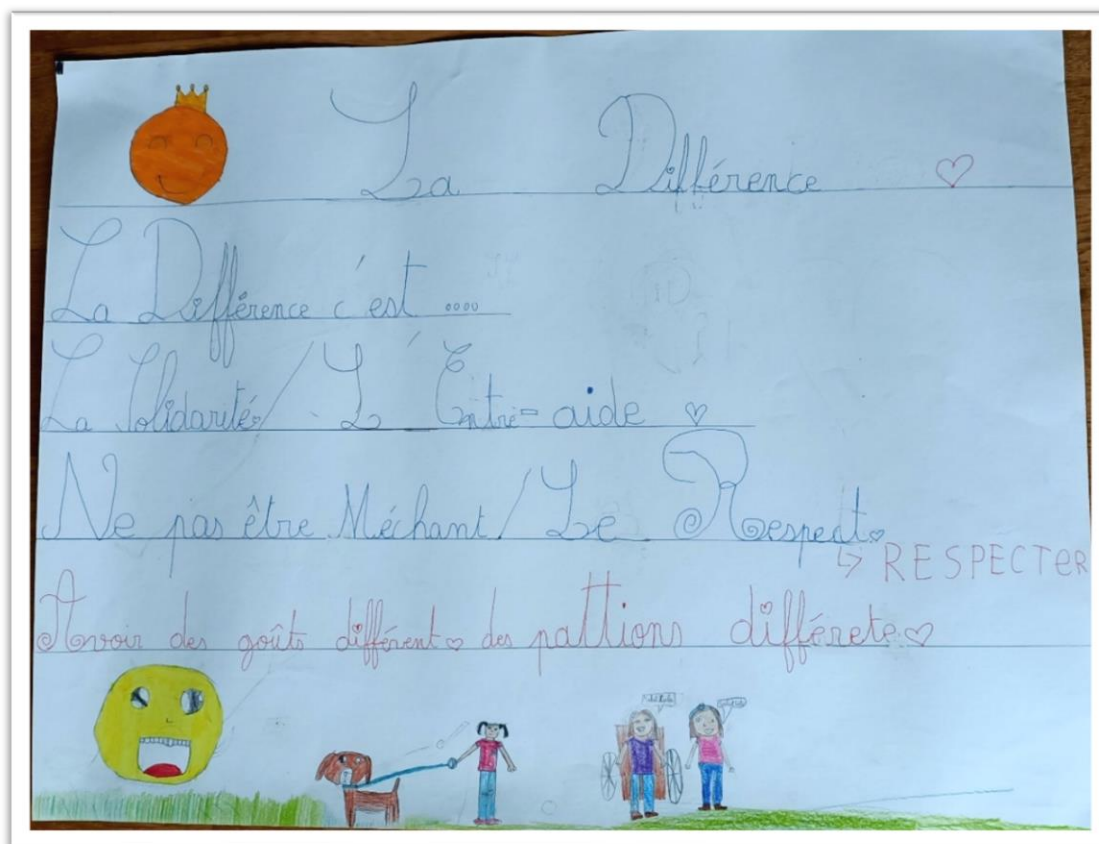 La Différence
La Différence c'est ....
La Solidarité / L'Entre-aide
Ne pas être Méchant / Le Respect.
↳ RESPECTER
Avoir des goûts différent des pattions différete